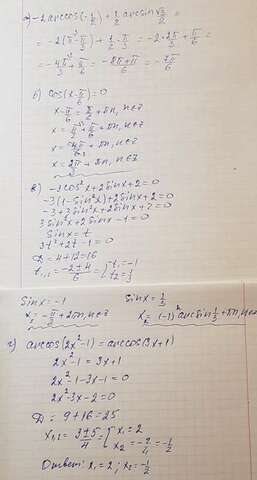 а) -2 arccos(-1/2) + 1/2 arcsin √3/2 =
= -2(π - π/3) + 1/2 · π/3 = -2 · 2π/3 + π/6 =
= -4π/3 + π/6 = -8π+π/6 = -7π/6
б) cos(x - π/6) = 0
x - π/6 = π/2 + πn, n∈Z
x = π/2 + π/6 + πn, n∈Z
x = 4π/6 + πn, n∈Z
x = 2π/3 + πn, n∈Z
в) -3cos²x + 2sinx + 2 = 0
-3(1 - sin²x) + 2sinx + 2 = 0
-3 + 3sin²x + 2sinx + 2 = 0
3sin²x + 2sinx - 1 = 0
sinx = t
3t² + 2t - 1 = 0
D = 4 + 12 = 16
t₁,₂ = -2±4/6 = [t₁ = -1
t₂ = 1/3
sinx = -1 sinx = 1/3
x₁ = -π/2 + 2πn, n∈Z x₂ = (-1)ⁿ arcsin 1/3 + πn, n∈Z
г) arccos(2x² - 1) = arccos(3x + 1)
2x² - 1 = 3x + 1
2x² - 1 - 3x - 1 = 0
2x² - 3x - 2 = 0
D = 9 + 16 = 25
x₁,₂ = 3±5/4 = [x₁ = 2
x₂ = -2/4 = -1/2
Ответ: x₁ = 2; x₂ = -1/2